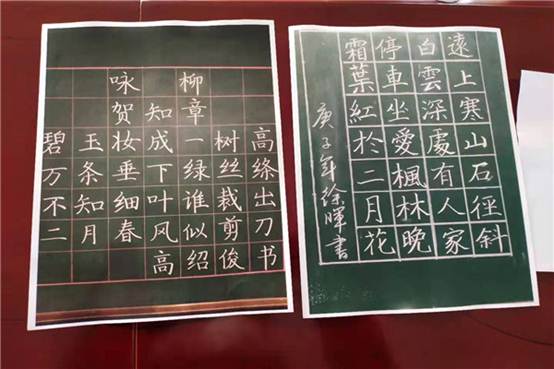 咏柳
贺知章
碧玉妆成一树高
万条垂下绿丝绦
不知细叶谁裁出
二月春风似剪刀
高绍俊书
遠上寒山石徑斜
白雲深處有人家
停車坐愛楓林晚
霜葉紅於二月花
庚子年徐暉書